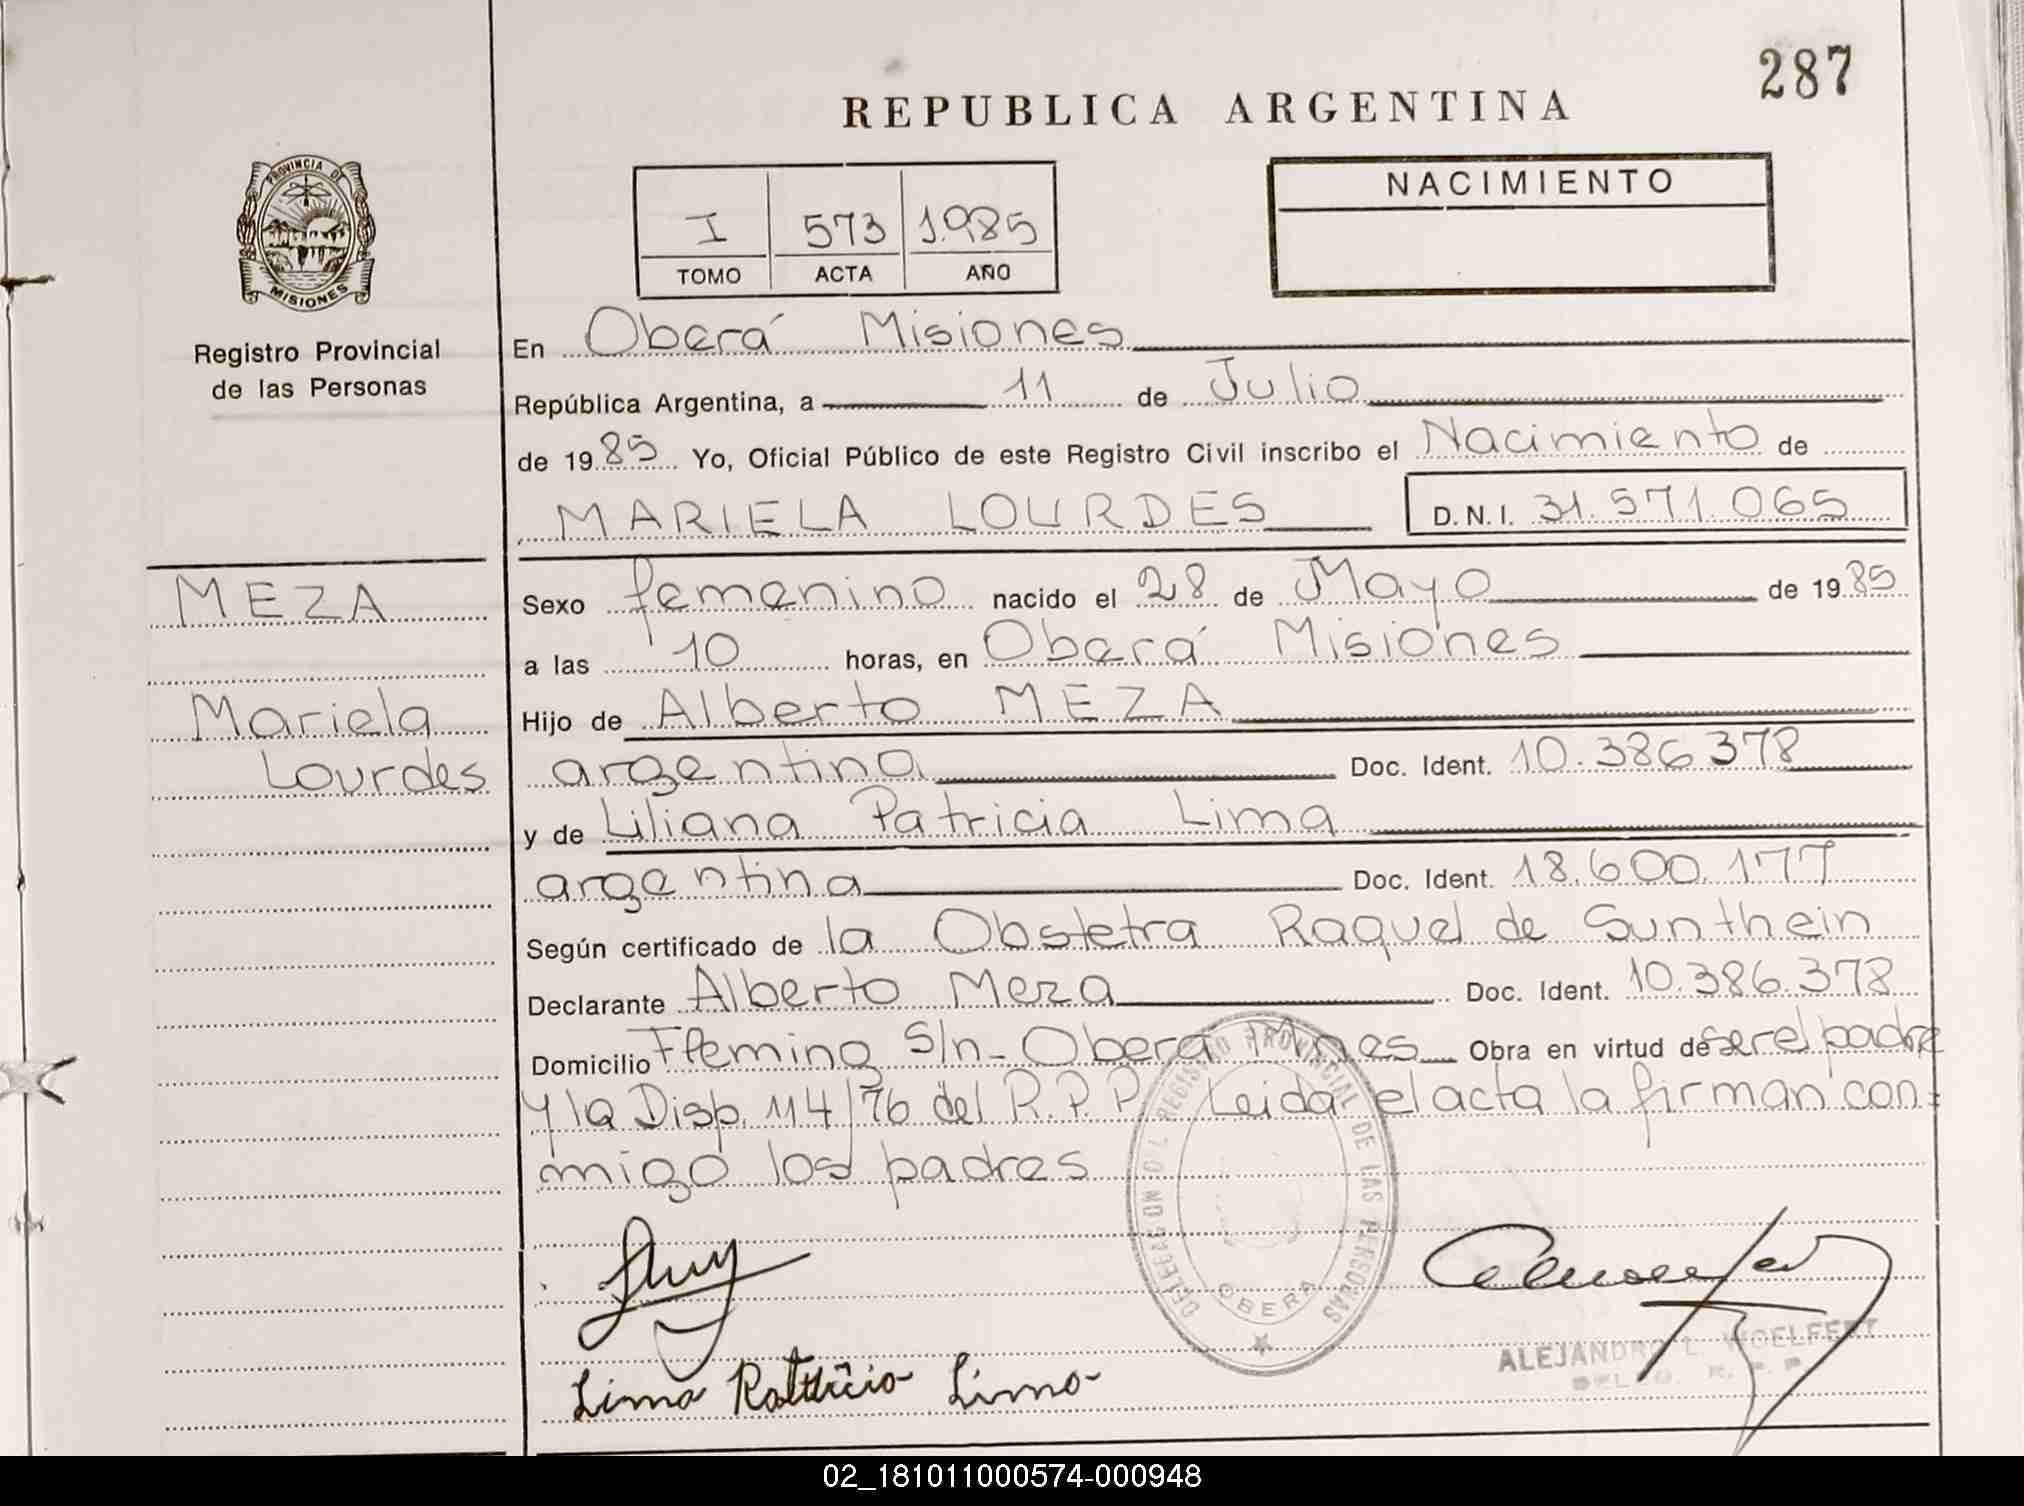 287
REPUBLICA ARGENTINA
PROVINCIA DE MISIONES
Registro Provincial
de las Personas
I 573 1.985
TOMO ACTA AÑO
NACIMIENTO
En Oberá Misiones
República Argentina, a 11 de Julio
de 1985 Yo, Oficial Público de este Registro Civil inscribo el Nacimiento de
MARIELA LOURDES D.N.I. 31.571.065
MEZA
Mariela
Lourdes
Sexo femenino nacido el 28 de Mayo de 1985
a las 10 horas, en Oberá Misiones
Hijo de Alberto MEZA
argentina Doc. Ident. 10.386378
y de Liliana Patricia Lima
argentina Doc. Ident. 18.600.177
Según certificado de la Obstetra Raquel de Sunthein
Declarante Alberto Meza Doc. Ident. 10.386.378
Domicilio Fleming S/n - Oberá Mnes Obra en virtud de ser el padre
y la Disp. 114/76 del R.P.P. Leida el acta la firman con=
migo los padres
DELEGACION REGISTRO PROVINCIAL DE LAS PERSONAS
OBERA
Lima Patricia Lima
ALEJANDRO L. WOELFERT
R. P. P.
02_181011000574-000948